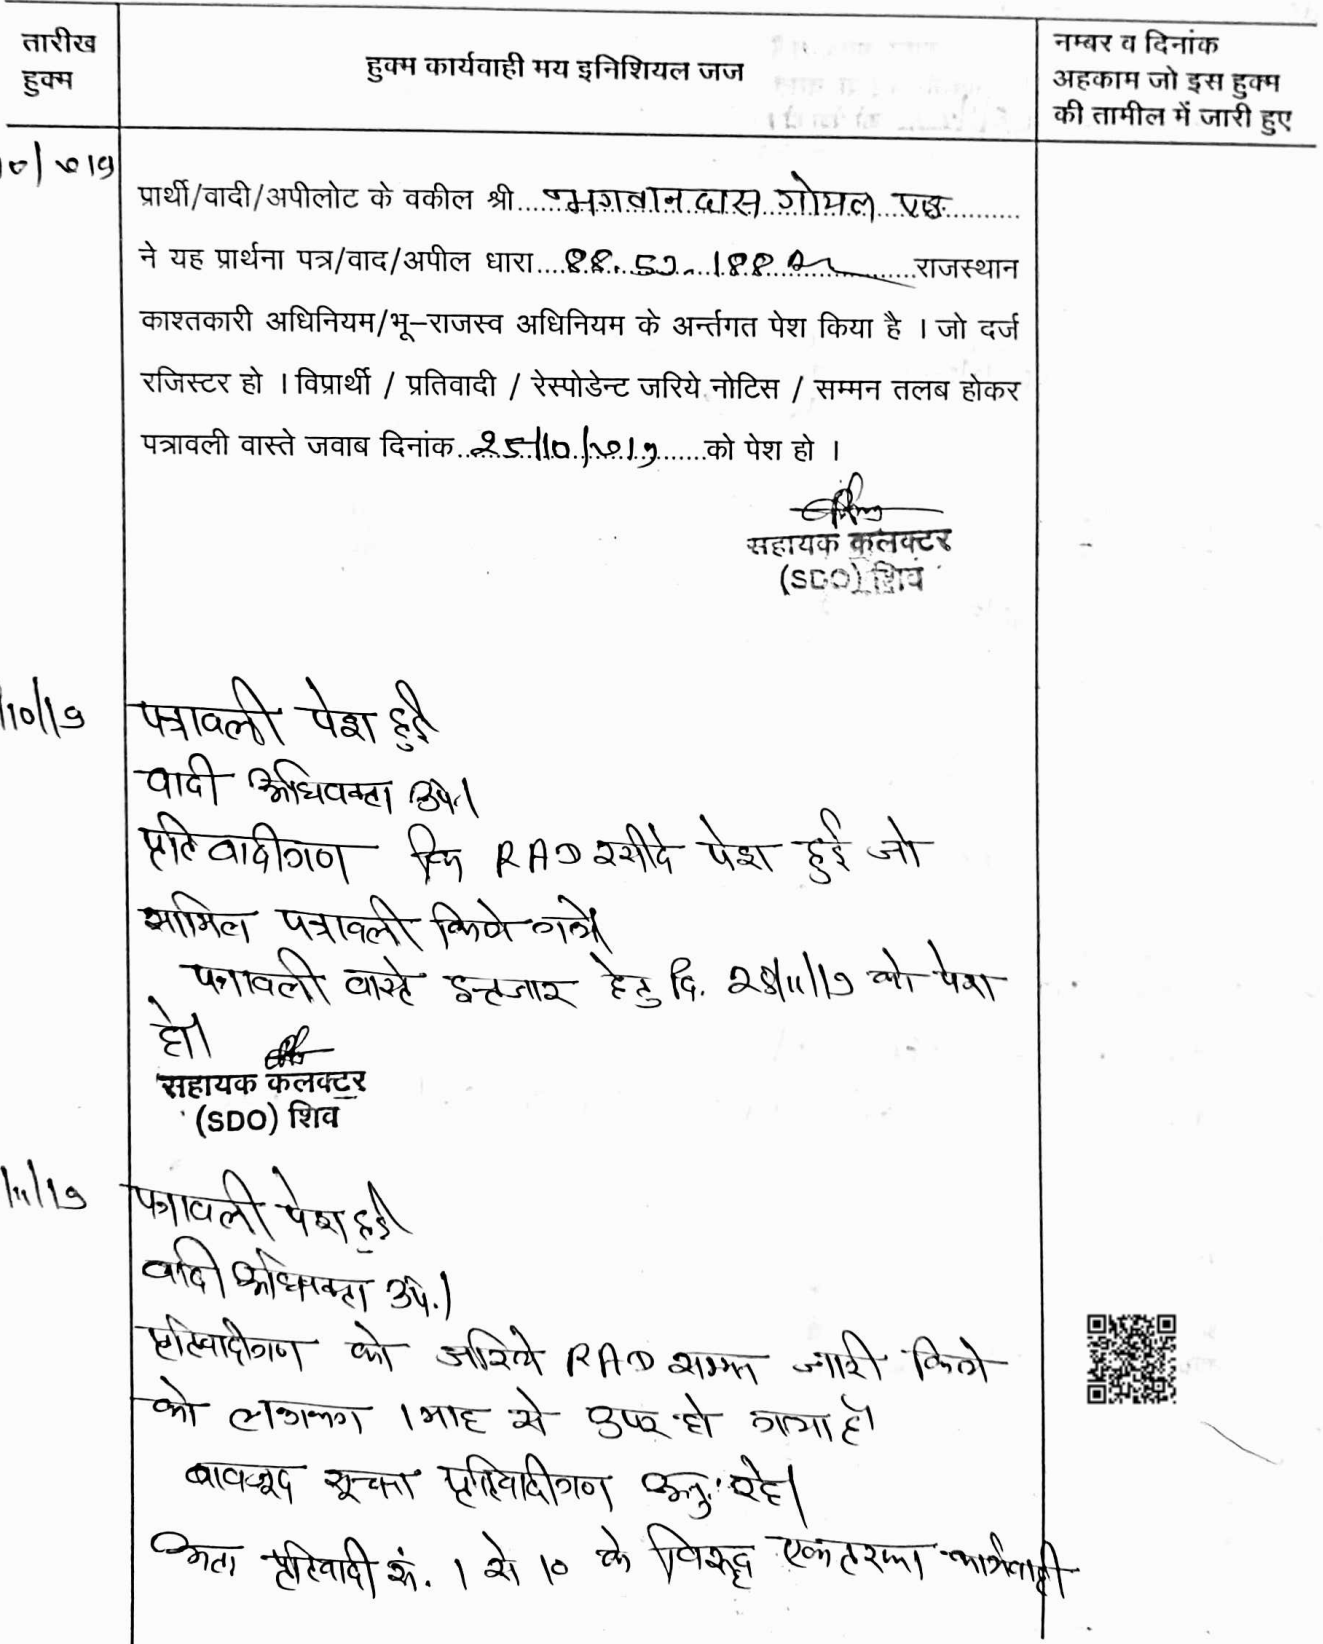 तारीख
हुक्म
हुक्म कार्यवाही मय इनिशियल जज
नम्बर व दिनांक
अहकाम जो इस हुक्म
की तामील में जारी हुए
प्रार्थी/वादी/अपीलोट के वकील श्री....भगवानदास गोयल एड............
ने यह प्रार्थना पत्र/वाद/अपील धारा....88.53..188..........राजस्थान
काश्तकारी अधिनियम/भू–राजस्व अधिनियम के अर्न्तगत पेश किया है । जो दर्ज
रजिस्टर हो । विप्रार्थी / प्रतिवादी / रेस्पोडेन्ट जरिये नोटिस / सम्मन तलब होकर
पत्रावली वास्ते जवाब दिनांक..25/10/2019.......को पेश हो ।
सहायक कलक्टर
(SDO) शिव
/10/19 पत्रावली पेश हुई
वादी अधिवक्ता उप.।
प्रतिवादीगण कि RAD रसीदे पेश हुई जो
सामिल पत्रावली किये गये।
पत्रावली वास्ते इन्तजार हेतु दि. 28/11/19 को पेश
हो।
सहायक कलक्टर
(SDO) शिव
/11/19 पत्रावली पेश हुई
वादी अधिवक्ता उप.।
प्रतिवादीगण को जरिये RAD सम्मन जारी किये
को लगभग 1 माह से उपर हो गया है।
बावजूद सूचना प्रतिवादीगण अनु. रहे।
अतः प्रतिवादी सं. 1 से 10 के विरुद्ध एकतरफा कार्यवाही